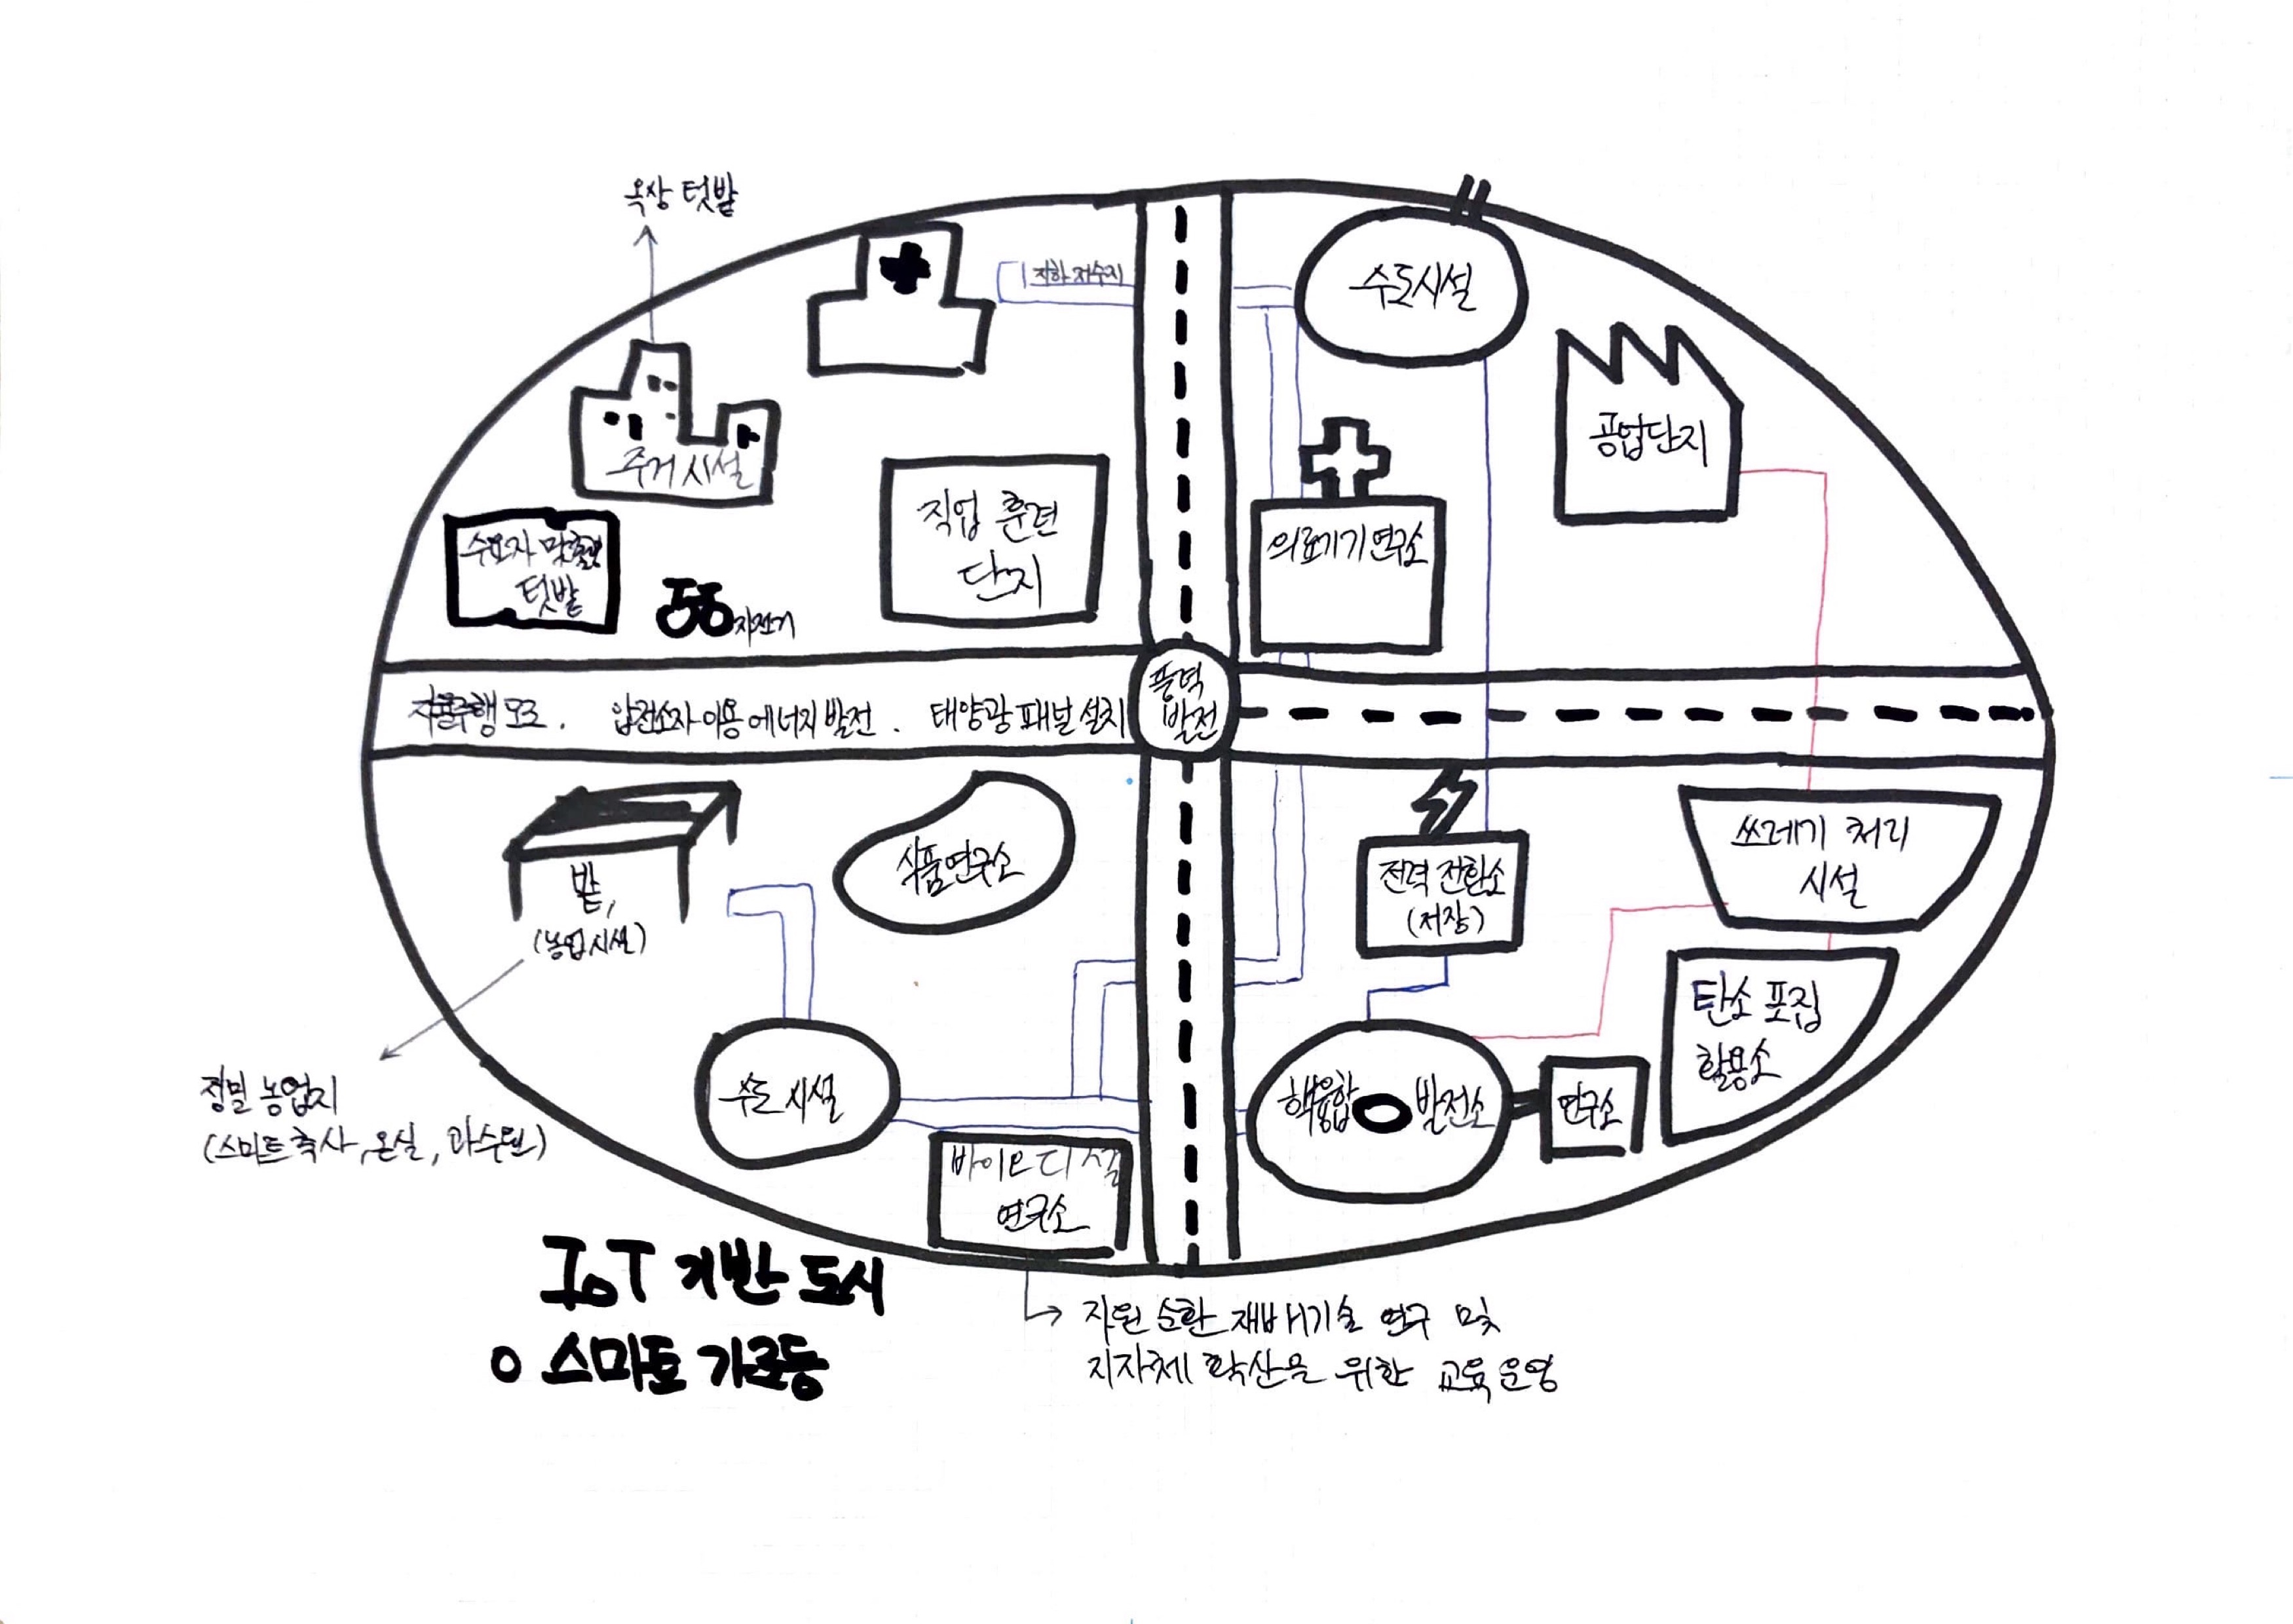 옥상 텃밭
지하 저수지
수도시설
주거 시설
공업단지
직업 훈련
단지
의료기기 연구소
수요자 맞춤형
텃밭
자전거
풍력
발전
자율주행 도로. 압전소자 이용 에너지 발전. 태양광 패널 설치
밭,
(농업시설)
식품연구소
전력 전환소
(저장)
쓰레기 처리
시설
탄소 포집
활용소
정밀 농업지
(스마트 축사, 온실, 과수원)
수도 시설
핵융합 발전소
연구소
바이오 디젤
연구소
IoT 기반 도시
o 스마트 가로등
자원 순환 재배기술 연구 및
지자체 확산을 위한 교육 운영